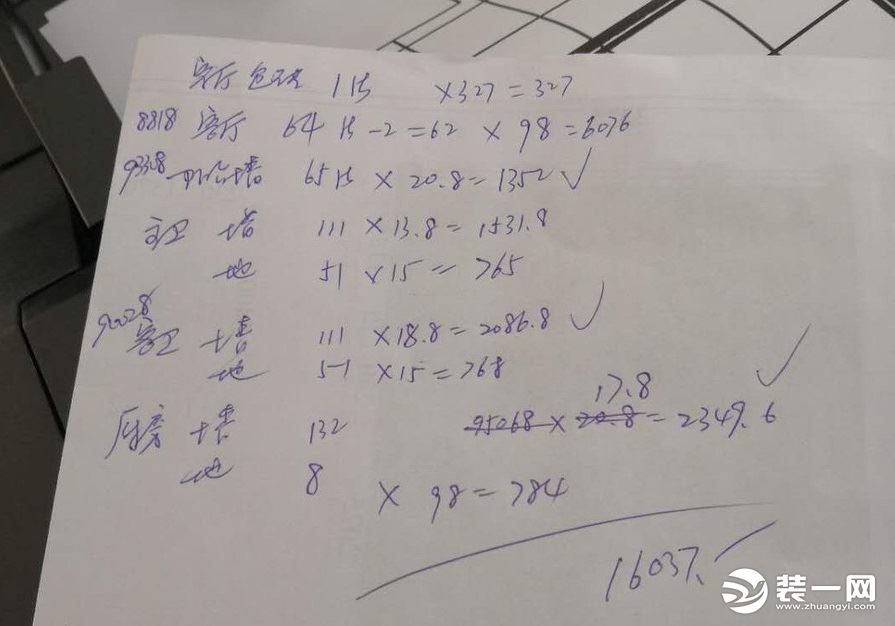 客厅 1片 ×327=327
8818 客厅 64片-2=62 × 98=6076
阳台墙 65片 × 20.8=1352 ✓
主卫 墙 111 × 13.8=1531.8
地 51 × 15=765
客卫 墙 111 ×18.8=2086.8 ✓
地 51 ×15=768
17.8 ✓
厨房 墙 132 95068 × 20.8=2349.6
地 8 × 98=784
16037.
装一网
www.zhuangyi.com